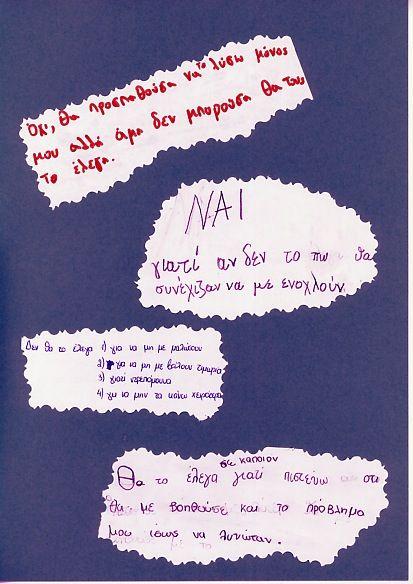 Όχι, θα προσπαθούσα να το λύσω μόνος
μου αλλά άμα δεν μπορούσα θα τους
το έλεγα.
ΝΑΙ
γιατί αν δεν το πω θα
συνέχιζαν να με ενοχλούν
Δεν θα το έλεγα 1) για να μη με μαλώσουν
2) για να μη με βάλουν τιμωρία
3) γιατί ντρεπόμουνα
4) για να μην τα κάνω χειρότερα
σε κάποιον
Θα το έλεγα γιατί πιστεύω οτι
θα με βοηθούσε και το πρόβλημα
μου ίσως να λυνώταν.